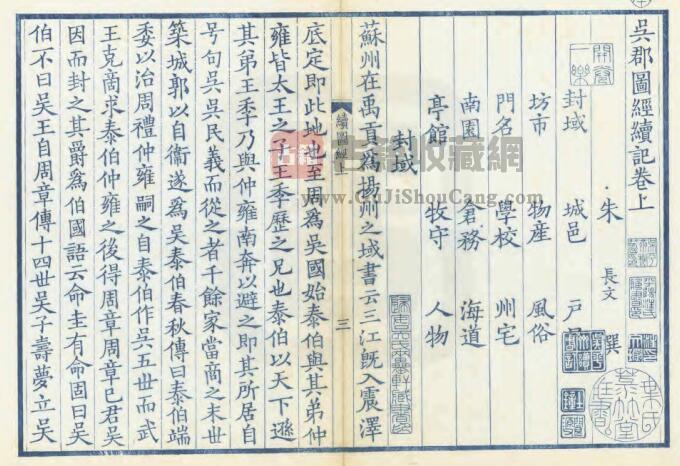 吳郡圖經續記卷上
朱長文撰
封域 城邑 戶
坊市 物産 風俗
門名 學校 州宅
南園 倉務 海道
亭館 牧守 人物
封域
蘇州在禹貢為揚州之域書云三江旣入震澤
底定即此地也至周為吳國始泰伯與其弟仲
雍皆太王之子王季歷之兄也泰伯以天下遜
其弟王季乃與仲雍南奔以避之即其所居自
号句吳吳民義而從之者千餘家當商之末世
築城郭以自衞遂為吳泰伯春秋傳曰泰伯端
委以治周禮仲雍嗣之自泰伯作吳五世而武
王克商求泰伯仲雍之後得周章周章已君吳
因而封之其爵為伯國語云命圭有命固曰吳
伯不曰吳王自周章傳十四世吳子壽夢立吳
續圖經上
三
古籍收藏網
www.GuJiShouCang.com